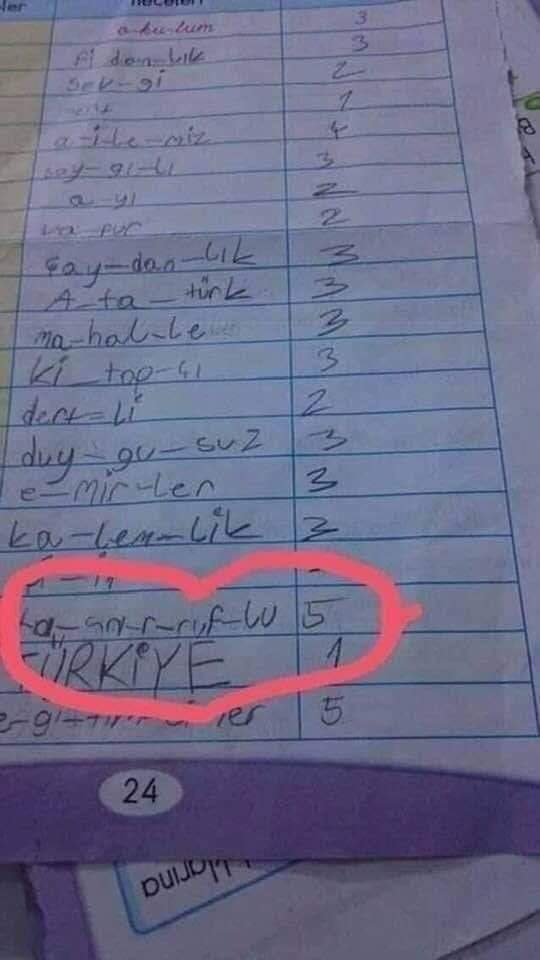 heceleri
o-ku-lum 3
fi dan-lık 3
sev-gi 2
1
a-i-le-miz 4
say-gı-lı 3
a-yı 2
va-pur 2
Çay-dan-lık 3
A-ta-türk 3
ma-hal-le 3
ki-tap-çı 3
dert-li 2
duy-gu-suz 3
e-mir-ler 3
ka-lem-lik 3
5
TÜRKİYE 1
5
24